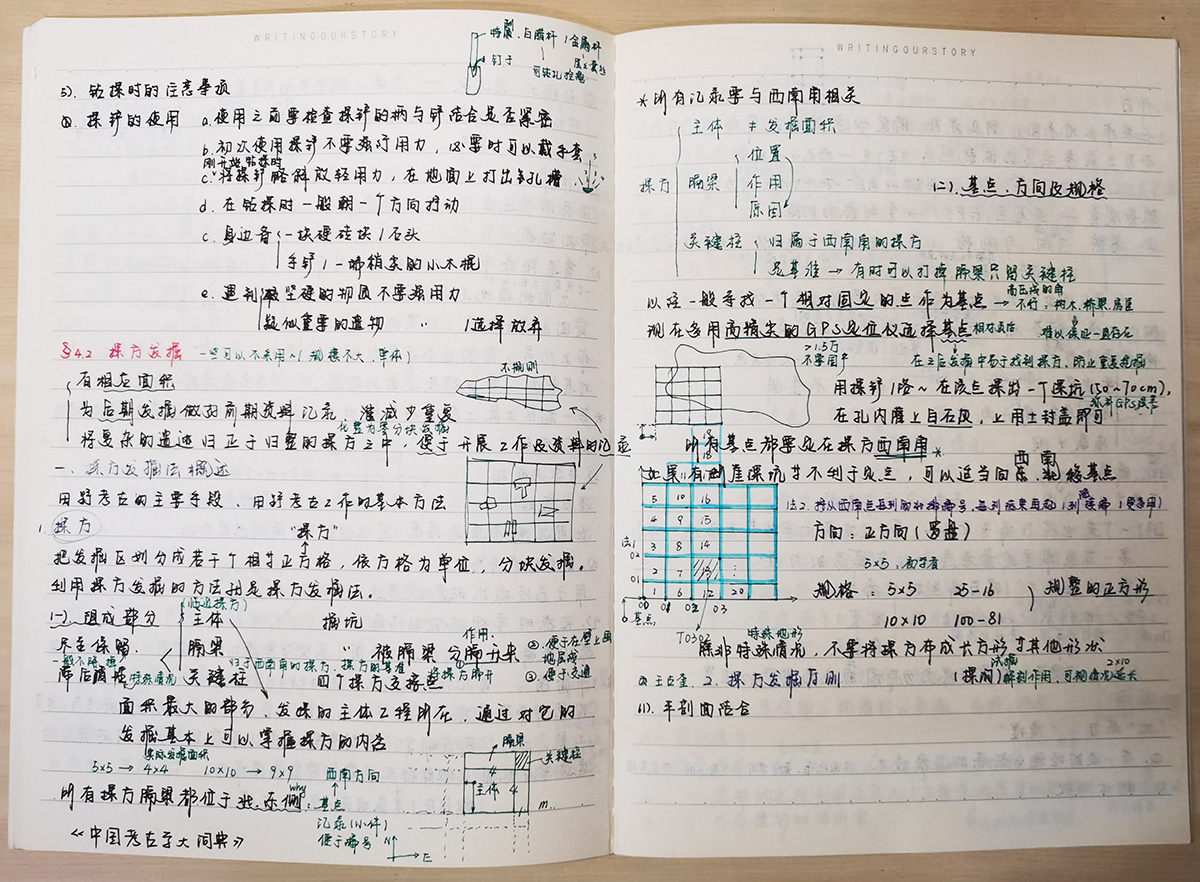 WRITINGOURSTORY
特制、白腊杆 1金属杆
钉子
可钻孔控痕
5). 钻探时的注意事项
①. 探铲的使用 a.使用之前要检查探铲的柄与铲结合是否紧密
b.初次使用探铲不要强行用力,必要时可以戴手套
刚开始钻探时
c.将探铲略斜放轻用力,在地面上打出多孔槽
d.在钻探时一般朝一个方向打动
c.身边备 一块硬砖块1石头
手铲1一端稍尖的小木棍
e.遇到 较坚硬的物质不要强用力
疑似重要的遗物 〃 1选择放弃
§4.2 探方发掘 一些可以不采用~1规模不大、单体)
有相应面积
不规则
为后期发掘做对前期资料记录 准减少重复
化整为零分块发掘
将复杂的遗迹归正于归整的探方之中,便于开展工作及资料的记录
一、探方发掘法概述
田野考古的主要手段、田野考古工作的基本方法
1.探方 "探方"
把发掘区划分成若干个相等正方格,依方格为单位,分块发掘。
利用探方发掘的方法到是探方发掘法。
(一).组成部分 (临近探方)
主体 掘坑
尽量保留. 隔梁 〃 被隔梁分隔开来
作用:
②.便于在壁上画地层线
③.便于交通
一般不隔掉
带后打掉 特殊情况 关键柱 四个探方交接点
归于西南角的探方、探方的基准
①将探方隔开
面积最大的部分、发掘的主体工程所在,通过对它的
发掘基本上可以掌握探方的内容
实际发掘面积
5×5 → 4×4 10×10 → 9×9
西南方向
隔梁
关键柱
4
主体 4
m
所有探方隔梁都位于北、东侧: 基点
why
记录(小件)
便于编号
N
E
《中国考古学大词典》
WRITINGOURSTORY
*所有记录要与西南角相关
主体 ≠ 发掘面积
探方 隔梁 位置
作用
原因
(二). 基点、方向及规格
关键柱 归属于西南角的探方
是基准 → 有时可以打掉隔梁只留关键柱
以往一般寻找一个相对固定的点作为基点 → 不行:树木、桥梁、房屋
难以保证一直存在
现在多用高精尖的GPS定位仪选择基点 相对最后
>1.5万
不要围户
在之后发掘中易于找到探方,防止重复挖掘
用探铲1洛~在该点探出一个深坑(50~70cm),
在孔内灌上白石灰,上用土封盖即可
所有基点都要定在探方西南角*
西 南
如果有断崖深坑等不利于定点,可以适当向东、北移基点
5 10 16
4 9 15
3 8 14
2 7 13 ⋮
1 6 12 20
法1
02
01
00 01 02 03
基点
T0302
方向:正方向(罗盘)
5×5:初学者
规格: 5×5 25-16 规整的正方形
10×10 100-81
特殊地形
除非特殊情况,不要将探方布成长方形等其他形状
2×10
2.探方发掘方则 (探沟) 解剖作用,可视情况延长
(1).平剖面结合